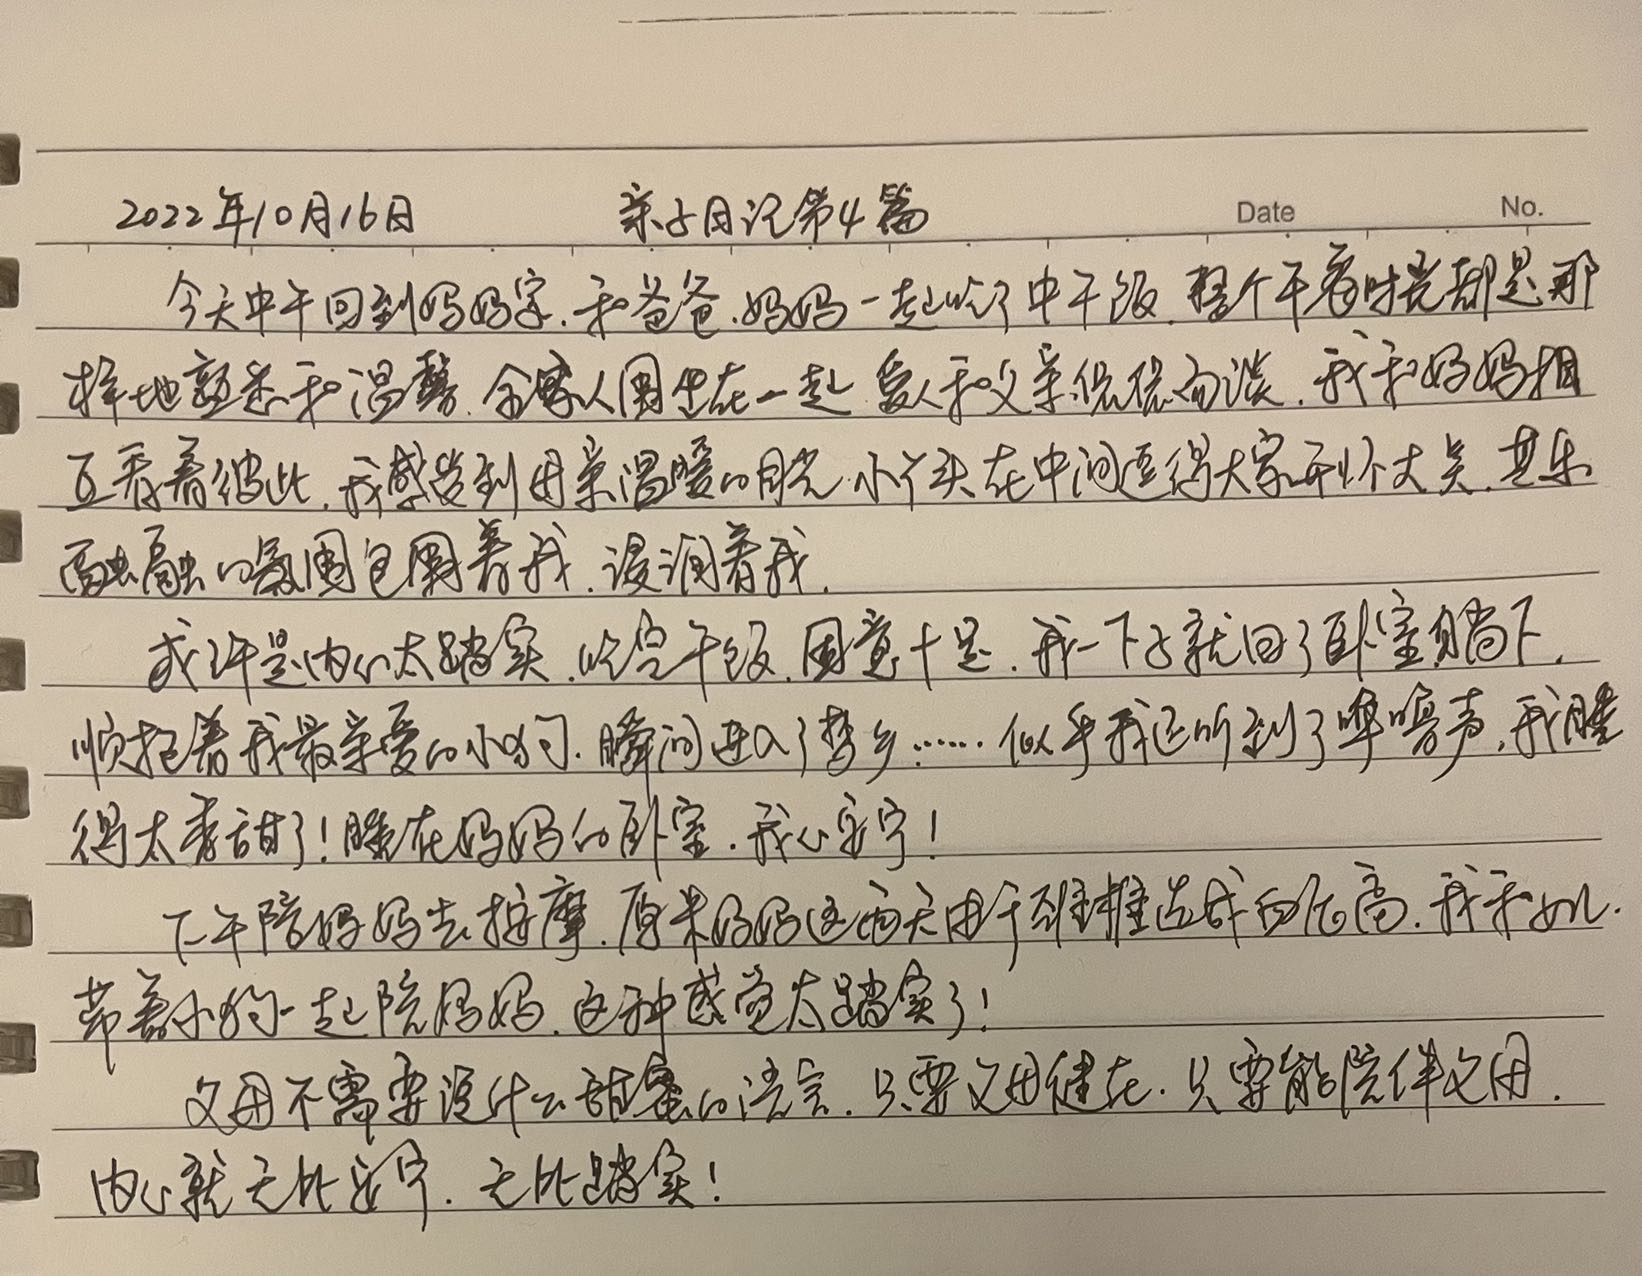 2022年10月16日 亲子日记第4篇 Date No.
今天中午回到妈妈家,和爸爸、妈妈一起吃了中午饭,整个午看时光都是那
样地熟悉和温馨,全家人围坐在一起,爱人和父亲侃侃而谈,我和妈妈相
互看着彼此,我感觉到母亲温暖的目光,小丫头在中间逗得大家开怀大笑,其乐
融融的氛围包围着我,浸润着我。
或许是内心太踏实,吃完午饭,困意十足,我一下子就回了卧室躺下,
顺抱着我最亲爱的小狗,瞬间进入了梦乡……似乎我还听到了呼噜声,我睡
得太香甜了!睡在妈妈的卧室,我心安宁!
下午陪妈妈去按摩,原来妈妈这两天由于颈椎造成血压高,我和女儿
带着小狗一起陪妈妈,这种感觉太踏实了!
父母不需要说什么甜蜜的语言,只要父母健在,只要能陪伴父母,
内心就无比安宁,无比踏实!